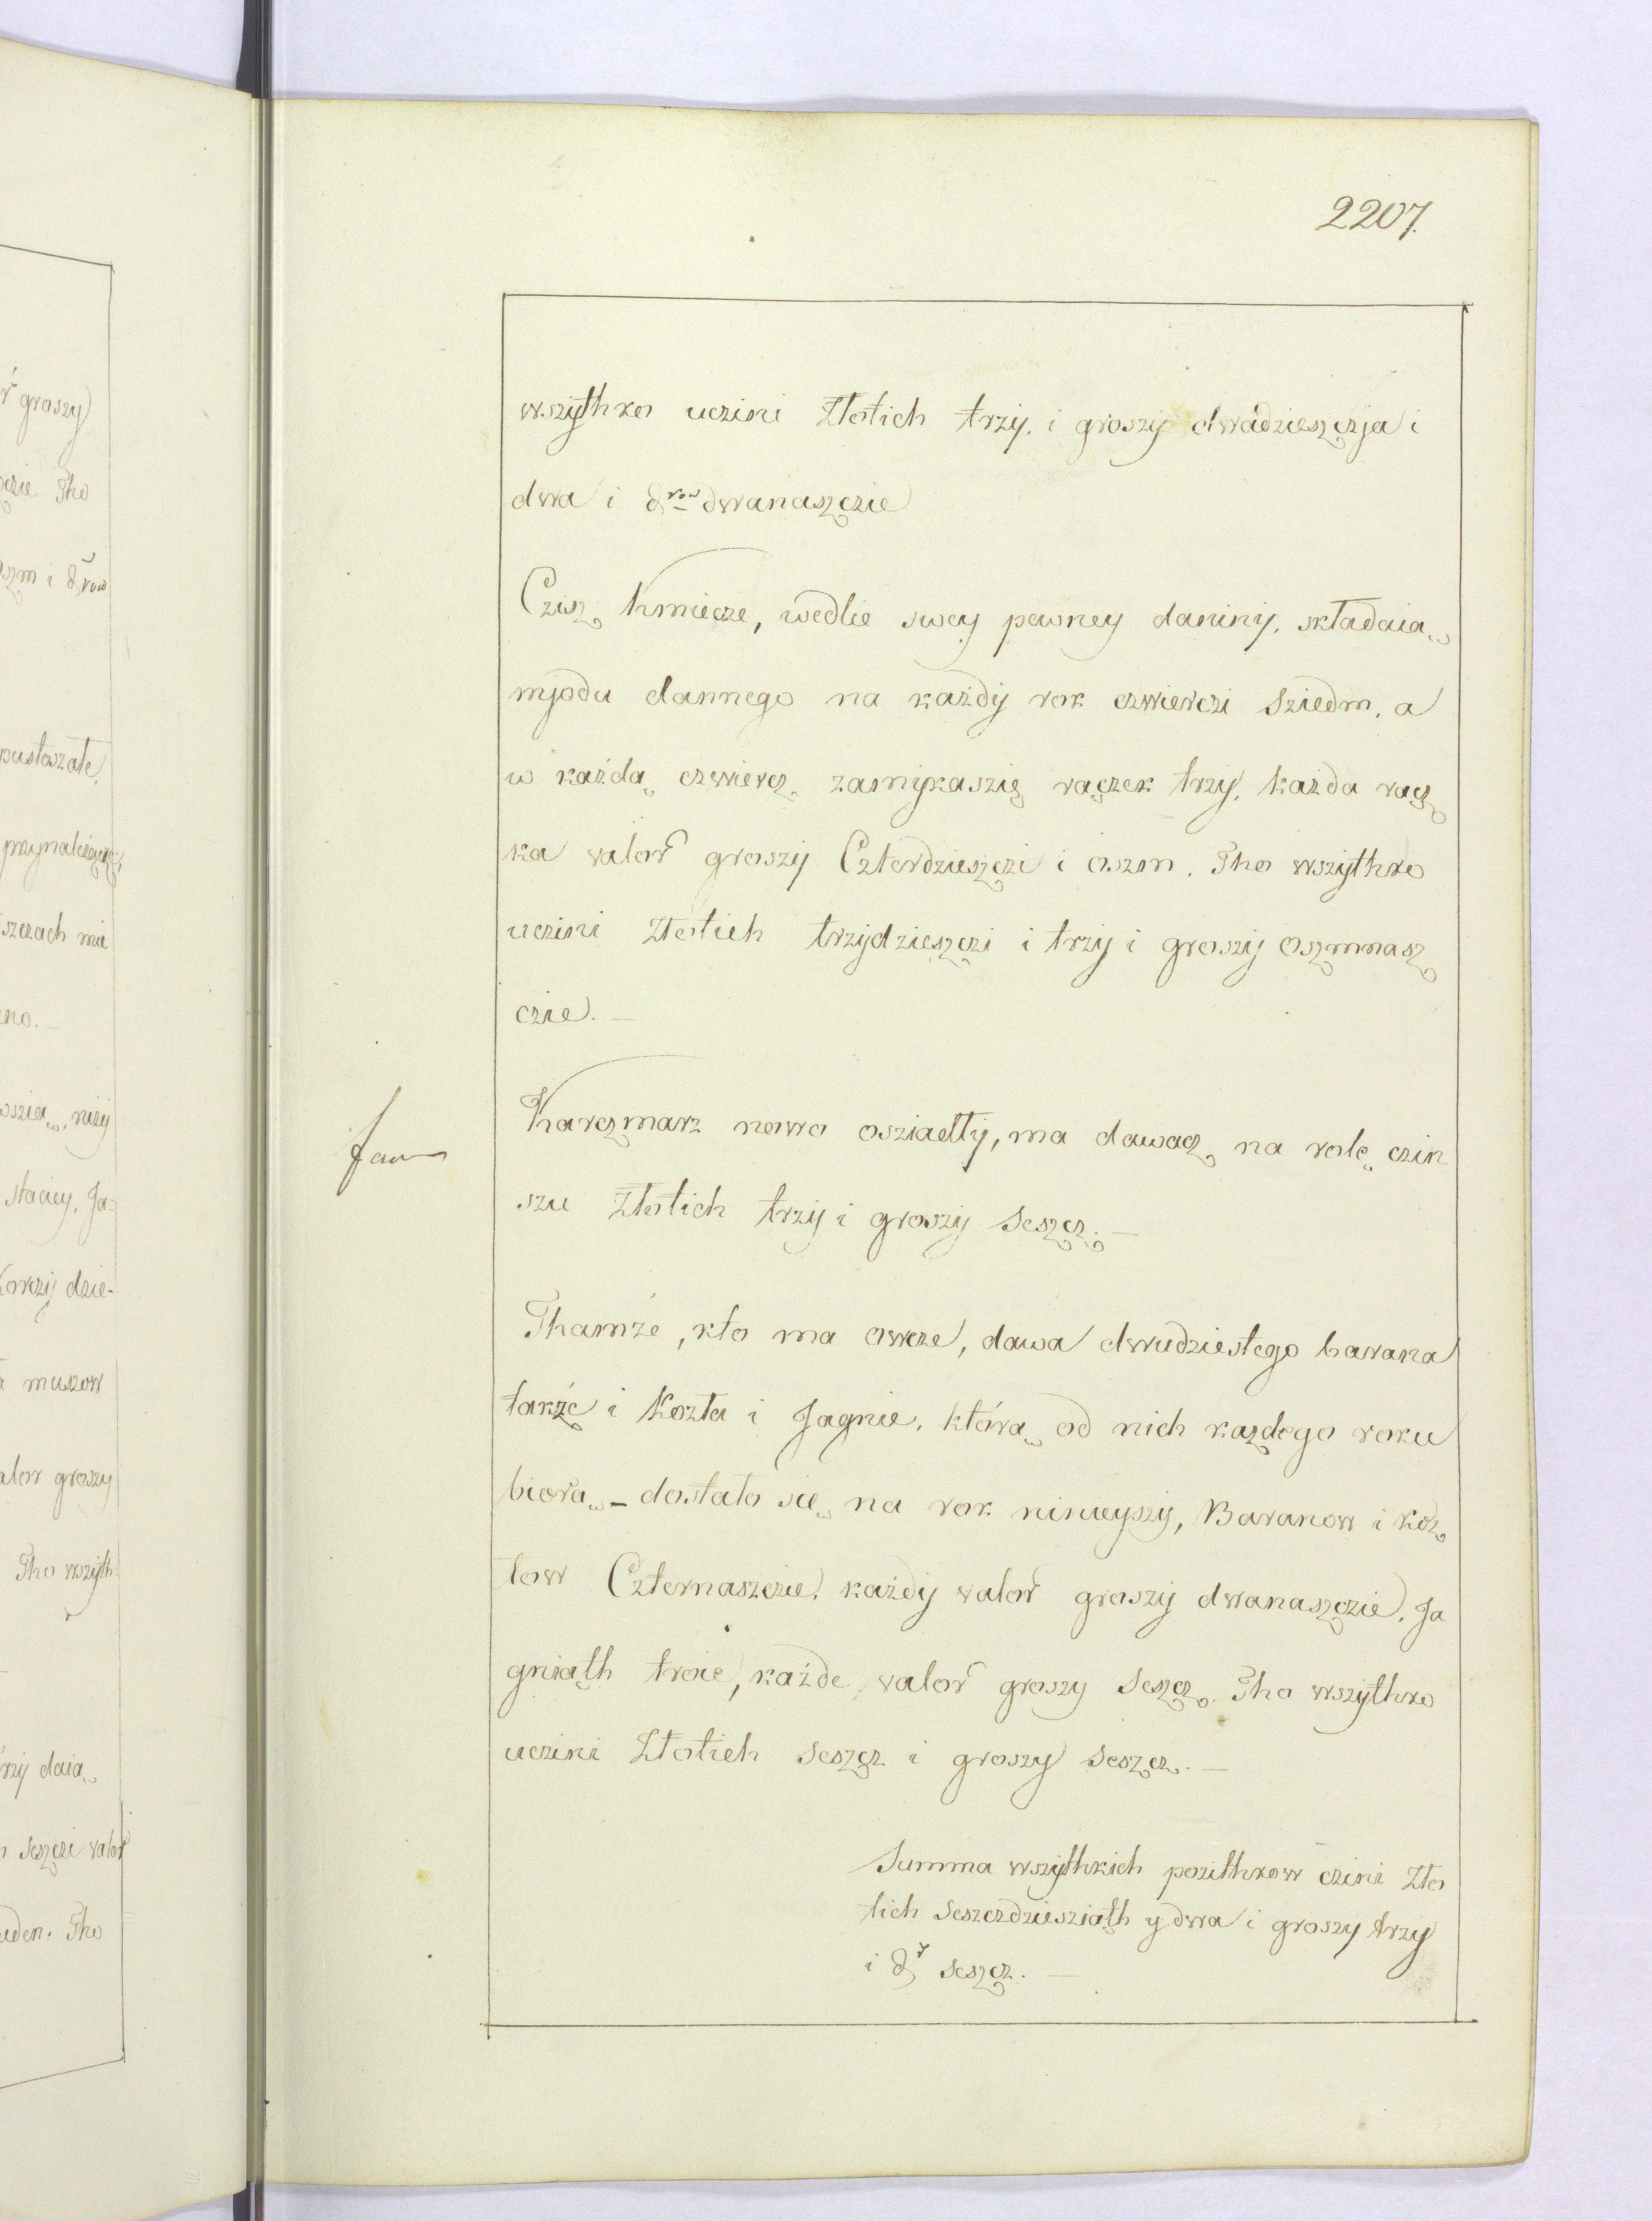 2207.
wszythko uczini Złotich trzy. i groszy dwadzieszczja i
dwa i d^row dwanaszczie
Czisz Kmiecze, wedlie swey pewney daniny, składaia̧
mjodu dannego na każdy rok czwierczi sziedm, a
w każda̧ czwiercz zamykaszię rączek trzy, każda rącz
ka valor groszy Czterdzieszczi i oszm. Tho wszythko
uczini Złotich trzydzieszczi i trzy i groszy oszmnasz
czie. —
Karczmarz nowo osziadły, ma dawacz na rolę czin
szu Złotich trzy i groszy seszcz. —
Thamże, kto ma owcze, dawa dwudziestego barana
także i Kozła i Jagnie, która̧ od nich każdego roku
biora̧ - dostało się na rok ninieyszy, Baranow i koz
łow Czternaszczie, każdy valor groszy dwanaszczie. Ja
gniąth troie, każde valor groszy seszcz. Tho wszythko
uczini Złotich seszcz i groszy seszcz. —
Summa wszythkich pozithkow czini Zło
tich seszczdziesziąth y dwa i groszy trzy
i d^r seszcz. —
r groszy
czie Tho
oszm i d^row
pustoszałe,
szczach mie
no. —
niży
staciey. Ja-
korczy dzie-
muszow
alor groszy
Tho wszyth-
rzy daia̧
seszczi valor
uden. Tho